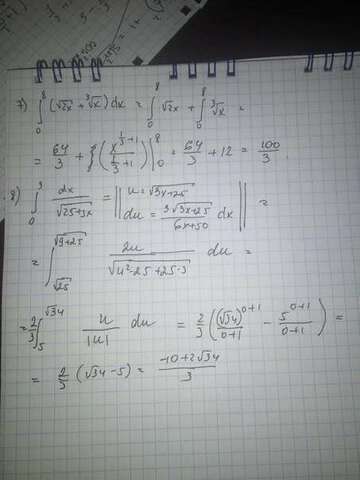 7) ∫₀⁸ (√2x + ∛x) dx = ∫₀⁸ √2x + ∫₀⁸ ∛x =
= 64/3 + {(x^(1/3+1)/(1/3+1))|₀⁸ = 64/3 + 12 = 100/3.
8) ∫₀³ dx/√(25+3x) = ‖ u = √(3x+25) ‖ =
du = 3√(3x+25)/(6x+50) dx
= ∫_√25^√(9+25) 2u/√(u²-25+25·3) du =
= 2/3 ∫₅^√34 u/|u| du = 2/3 ((√34)^(0+1)/(0+1) - 5^(0+1)/(0+1)) =
= 2/3 (√34 - 5) = (-10+2√34)/3